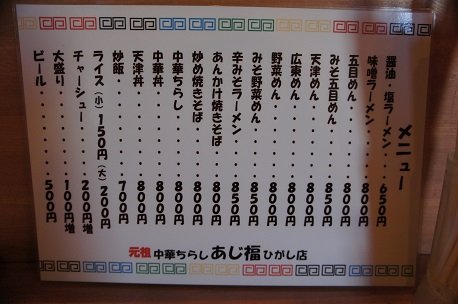 メニュー
醤油・塩ラーメン・・650円
味噌ラーメン・・・・800円
五目めん・・・・・・800円
みそ五目めん・・・・850円
天津めん・・・・・・800円
広東めん・・・・・・800円
野菜めん・・・・・・800円
みそ野菜めん・・・・850円
辛みそラーメン・・・850円
あんかけ焼きそば・・800円
炒め焼きそば・・・・800円
中華ちらし・・・・・800円
中華丼・・・・・・・800円
天津丼・・・・・・・800円
炒飯・・・・・・・・700円
ライス(小)150円(大)200円
チャーシュー・・・・200円増
大盛り・・・・・・・100円増
ビール・・・・・・・500円
元祖 中華ちらし あじ福 ひがし店